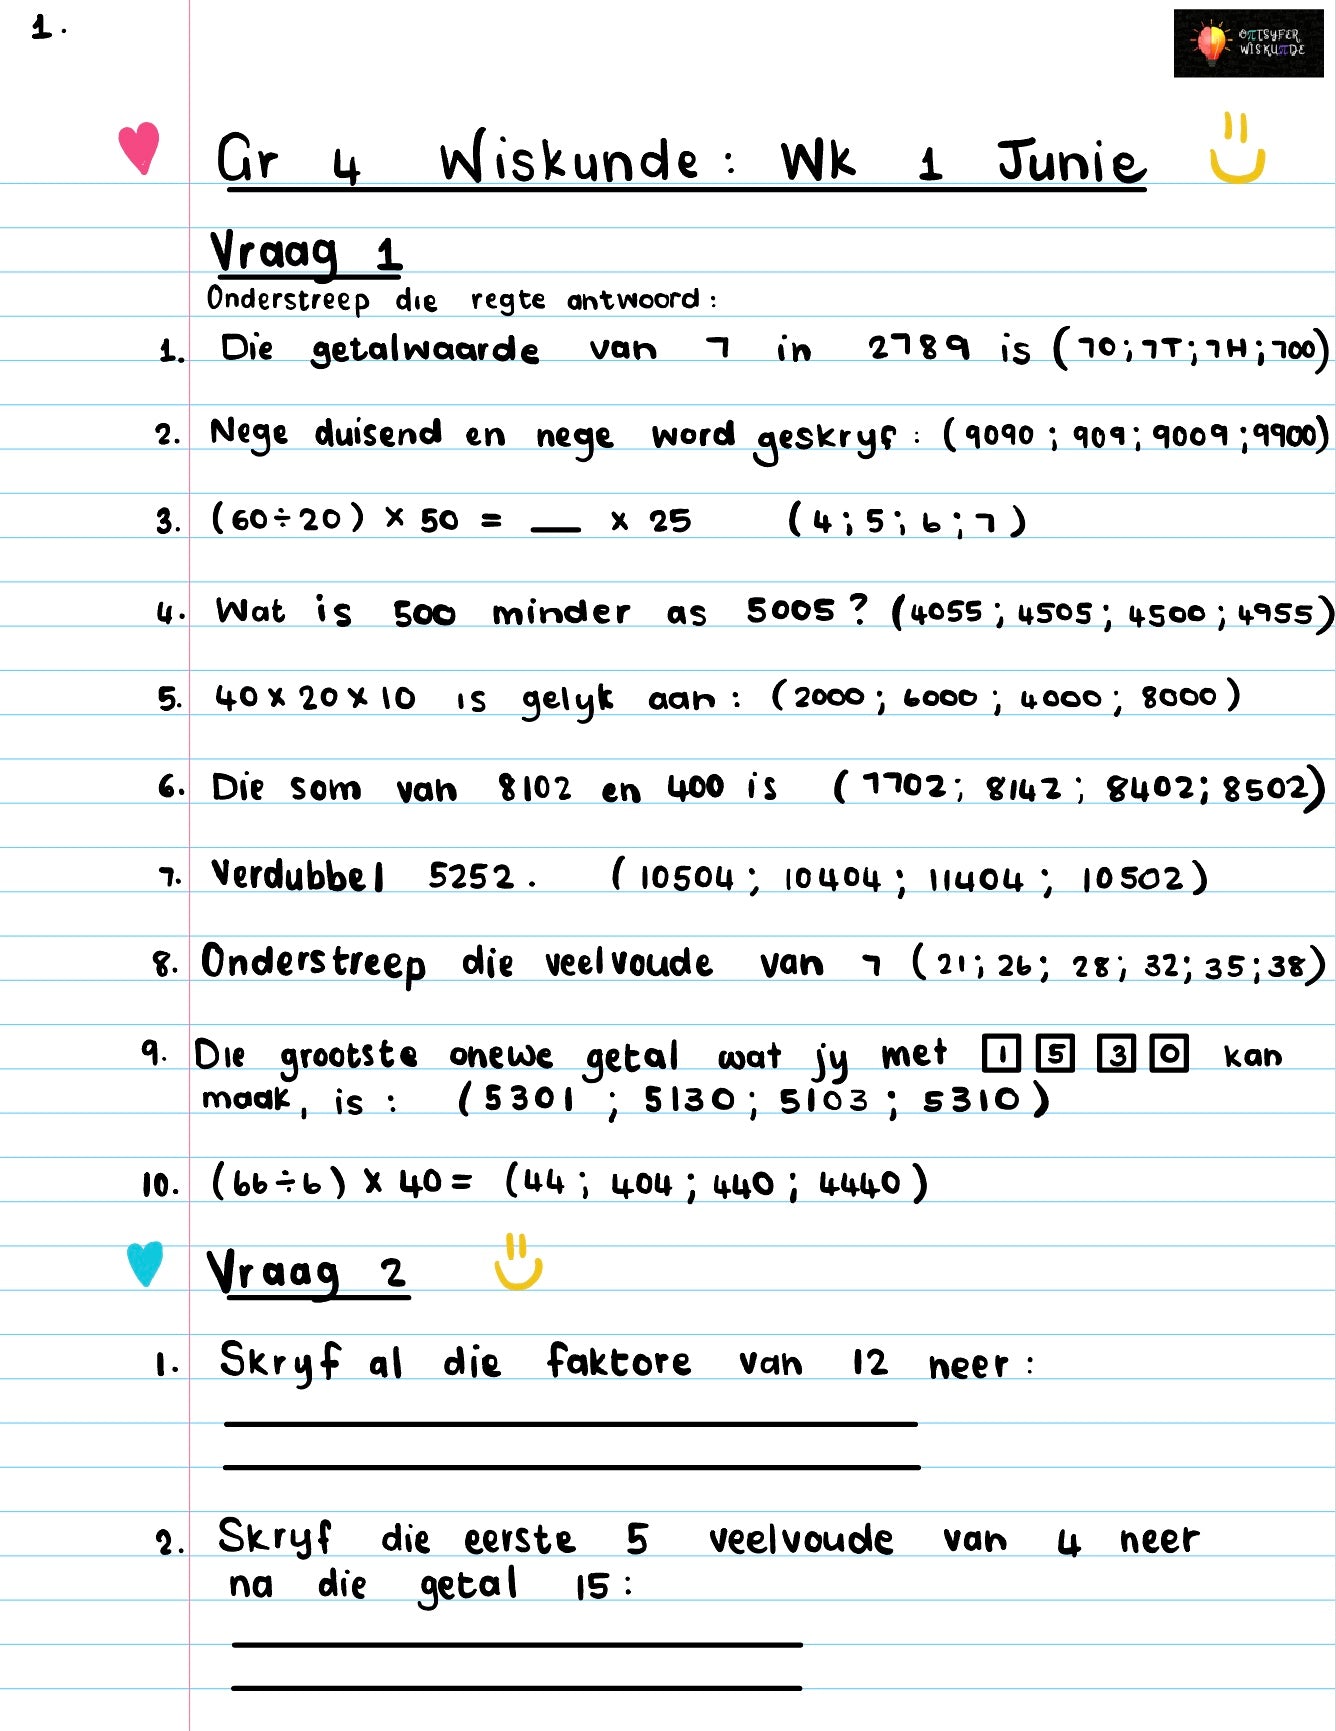 1.
OπTSYFER
WISKUπDE
Gr 4 Wiskunde: Wk 1 Junie
Vraag 1
Onderstreep die regte antwoord:
1. Die getalwaarde van 7 in 2789 is (70; 7T; 7H; 700)
2. Nege duisend en nege word geskryf: (9090; 909; 9009; 9900)
3. (60÷20) × 50 = __ × 25 (4; 5; 6; 7)
4. Wat is 500 minder as 5005? (4055; 4505; 4500; 4955)
5. 40 × 20 × 10 is gelyk aan: (2000; 6000; 4000; 8000)
6. Die som van 8102 en 400 is (7702; 8142; 8402; 8502)
7. Verdubbel 5252. (10504; 10404; 11404; 10502)
8. Onderstreep die veelvoude van 7 (21; 26; 28; 32; 35; 38)
9. Die grootste onewe getal wat jy met 1 5 3 0 kan
maak, is: (5301; 5130; 5103; 5310)
10. (66÷6) × 40 = (44; 404; 440; 4440)
Vraag 2
1. Skryf al die faktore van 12 neer:
2. Skryf die eerste 5 veelvoude van 4 neer
na die getal 15: